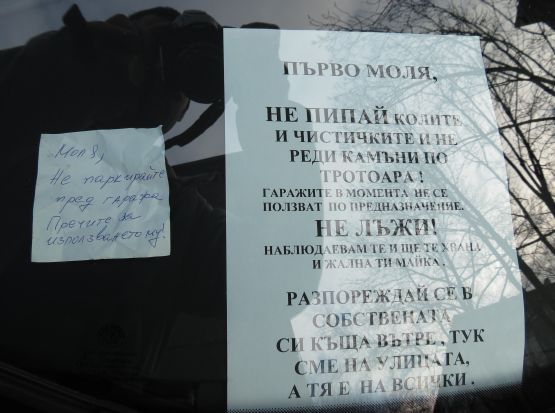 Моля,
Не паркирайте
пред гаража
Пречите за
използването му!
ПЪРВО МОЛЯ,
НЕ ПИПАЙ КОЛИТЕ
И ЧИСТИЧКИТЕ И НЕ
РЕДИ КАМЪНИ ПО
ТРОТОАРА !
ГАРАЖИТЕ В МОМЕНТА НЕ СЕ
ПОЛЗВАТ ПО ПРЕДНАЗНАЧЕНИЕ.
НЕ ЛЪЖИ!
НАБЛЮДАВАМ ТЕ И ЩЕ ТЕ ХВАНА
И ЖАЛНА ТИ МАЙКА .
РАЗПОРЕЖДАЙ СЕ В
СОБСТВЕНАТА
СИ КЪЩА ВЪТРЕ , ТУК
СМЕ НА УЛИЦАТА,
А ТЯ Е НА ВСИЧКИ .